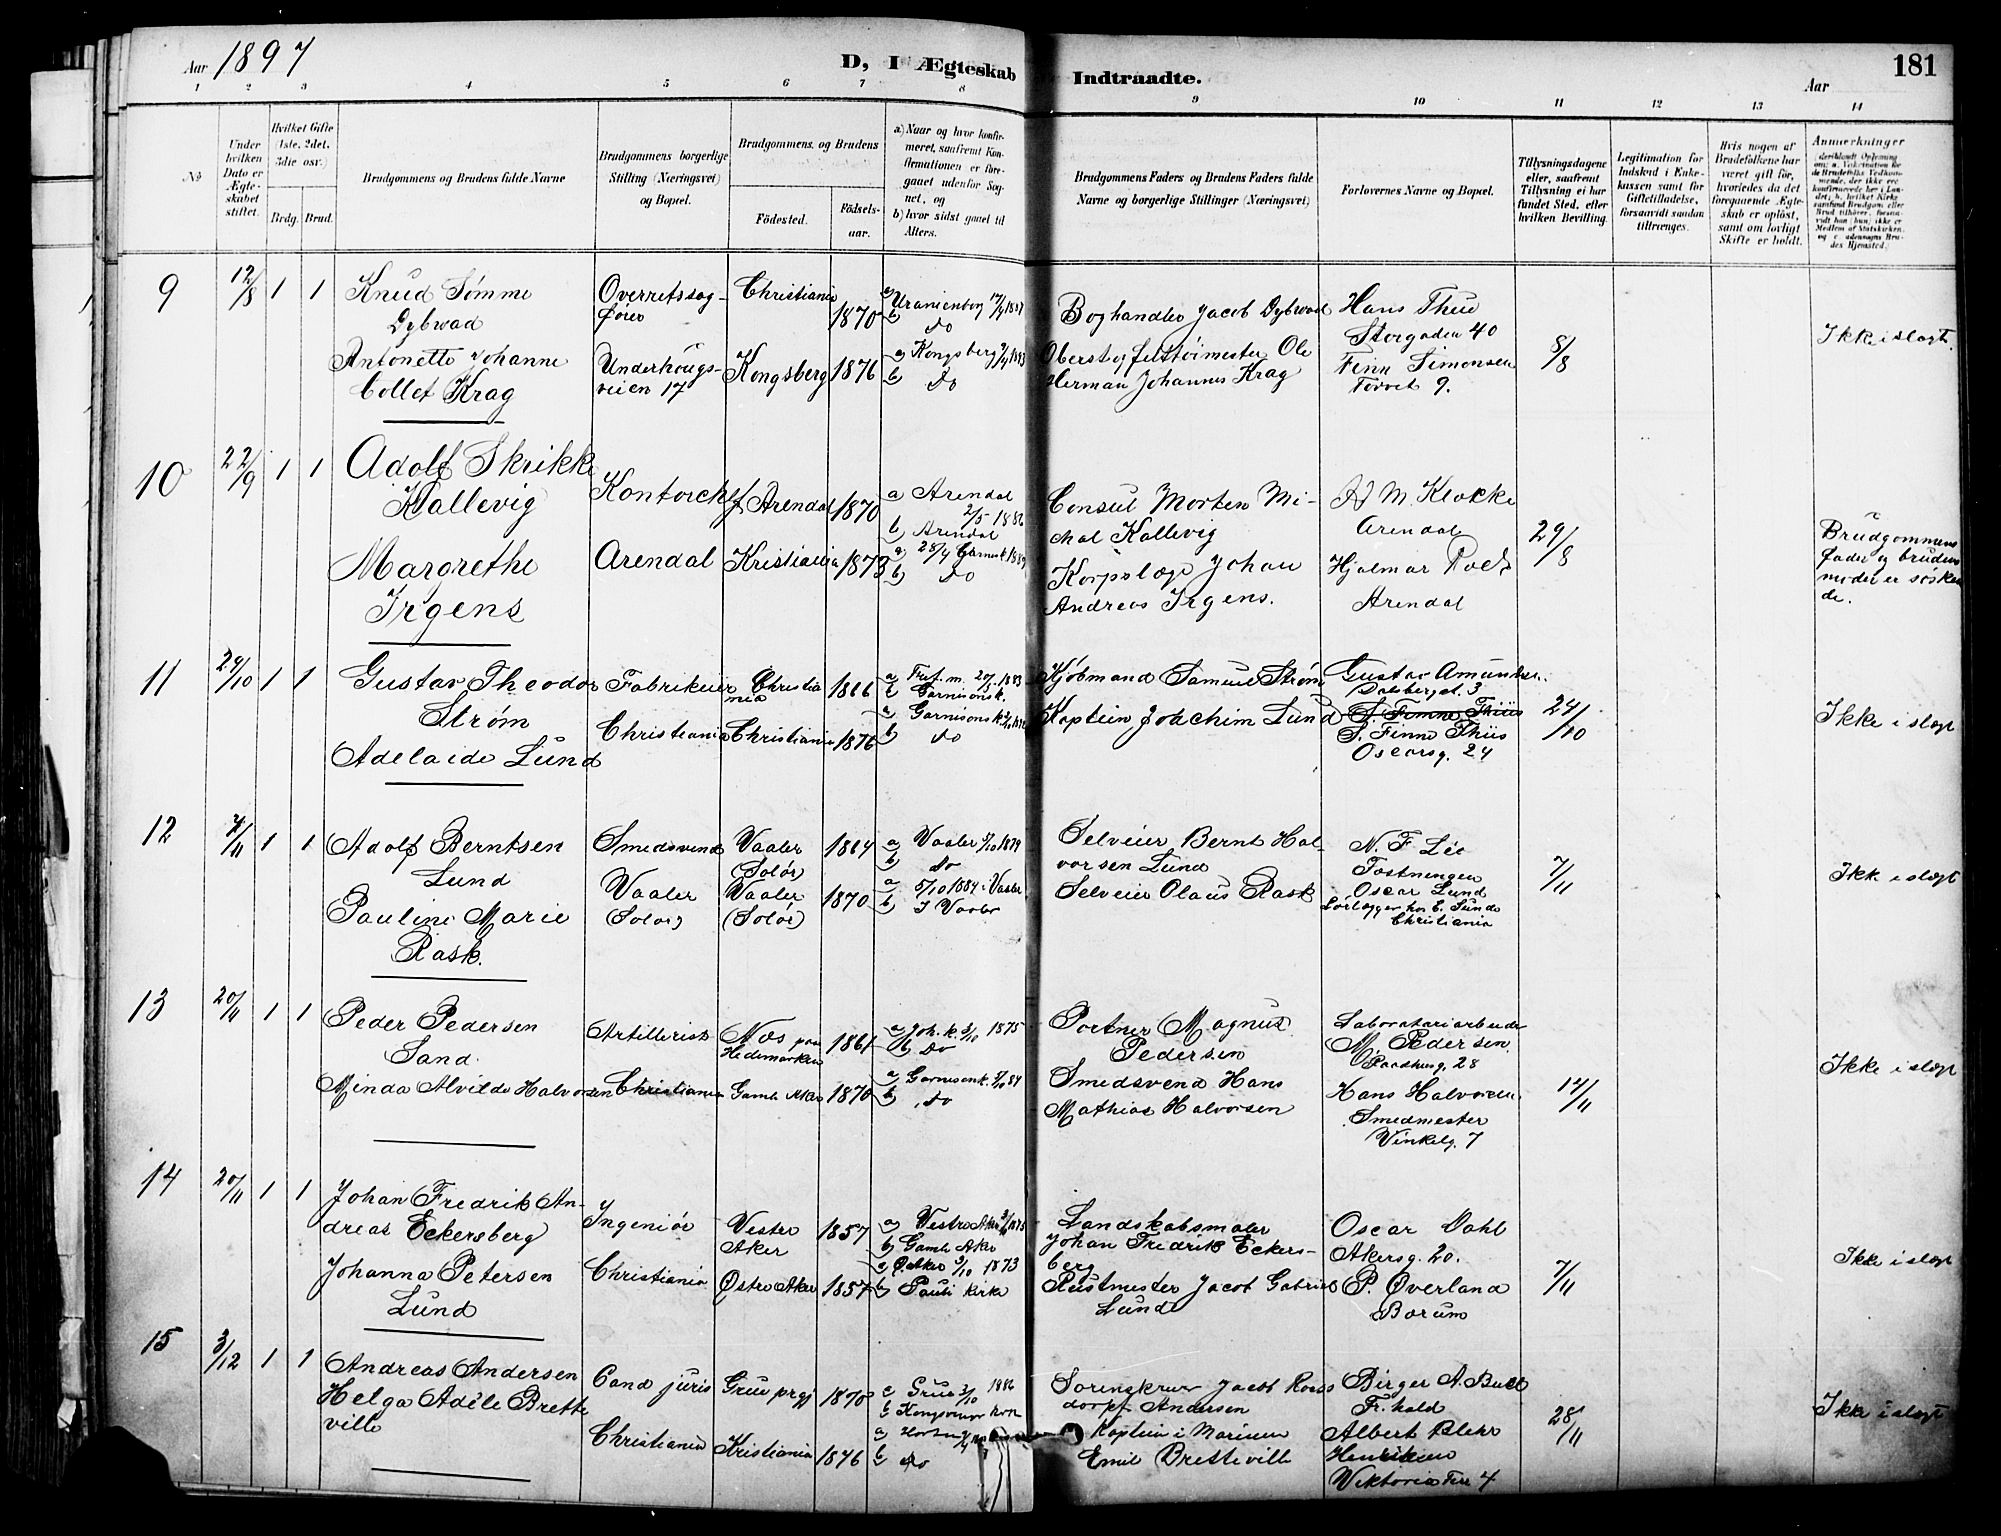 Aar 1897
D, I Ægteskab Indtraadte.
Aar
181
1 2 3 4 5 6 7 8 9 10 11 12 13 14
No
Under hvilken Dato er Ægteskabet stiftet.
Hvilket Gifte (1ste, 2det, 3die osv.)
Brdg. Brud.
Brudgommens og Brudens fulde Navne
Brudgommens borgerlige Stilling (Næringsvei) og Bopæl.
Brudgommens og Brudens
Födested. Födsels-aar.
a) Naar og hvor konfirmeret, saafremt Konfirmationen er foregaaet udenfor Sognet, og
b) hvor sidst gaaet til Alters.
Brudgommens Faders og Brudens Faders fulde Navne og borgerlige Stillinger (Næringsvei)
Forlovernes Navne og Bopæl.
Tillysningsdagene eller, saafremt Tillysning ei har fundet Sted, efter hvilken Bevilling.
Legitimation for Indskud i Enkekassen samt for Giftetilladelse, forsaavidt saadan tiltrænges.
Hvis nogen af Brudefolkene har været gift för, hvorledes da det foregaaende Ægteskab er oplöst, samt om lovligt Skifte er holdt.
Anmærkninger
9 12/8 1 1
Knud Sømme
Dybwad
Antonette Johanne
Collet Krag
Overretssag-
fører
Underhougs-
veien 17
Christiania 1870
Kongsberg 1876
a) Uranienborg
b) do
a) Kongsberg
b) do
Boghandler Jacob Dybwad
Oberst og feltøimester Ole
Herman Johannes Krag
Hans Thue
Storgaden 40
Finn Simonsen
Torvet 9.
8/8
Ikke i slægt.
10 22/9 1 1
Adolf Skrikke
Kallevig
Margrethe
Irgens
Kontorchef
Arendal
Arendal 1870
Kristiania 1873
a Arendal
2/5 1886
b) Arendal
a) 28/4 Garnisk 1889
b) do
Consul Morten Mi-
chal Kallevig
Korpslæge Johan
Andreas Irgens.
H M Klokke
Arendal
Hjalmar Roed
Arendal
29/8
Brudgommens
fader og brudens
moder er sösken
de.
11 24/10 1 1
Gustav Theodor
Strøm
Adelaide Lund
Fabrikeier
Christiania
Christia
nia 1866
Christiania 1876
a Tref. m. 1883
b Garnisonsk.
a) Garnisonsk
b) do
Kjöbmand Samuel Strøm
Kaptein Joachim Lund
Gustav Amundsen.
Dalsbergst. 3
S. Finne Thiis
S. Finne Thiis
Oscarsg. 24
24/10
Ikke i slægt
12 7/11 1 1
Adolf Berntsen
Lund
Pauline Marie
Rask.
Smedsvend
Vaaler
(Solør)
Vaaler
(Solör) 1864
Vaaler
(Solör) 1870
a) Vaaler 5/10 1879
b) do
a) 5/10 1884 i Vaaler
b) I Vaaler
Selveier Bernt Hal-
vorsen Lund
Selveier Olaus Rask
N. F. Lie
Fæstningen
Oscar Lund
Christiania
7/11
Ikke i slægt
13 20/11 1 1
Peder Pedersen
Sand
Minda Alvilde Halvorsen
Artillerist
Christiania
Næs paa
Hedemarken 1861
Gamle Aker 1870
a) Joh. k. 3/10 1875
b) do
a) Garnisonk. 5/10 84
b) do
Portner Magnus
Pedersen
Smedsvend Hans
Mathias Halvorsen
Laboratoriarbeider
M. Pedersen
28
Hans Halvorsen
Smedmester
Vinkelg. 7
14/11
Ikke i slægt
14 20/11 1 1
Johan Fredrik An-
dreas Eckersberg
Johanna Petersen
Lund
Ingeniör
Christiania
Vestre
Aker 1857
Östre Aker 1857
a) Vestre Aker
b) Gamle Aker
a) Ö. Aker 5/10 1873
b) Pauli kirke
Landskabsmaler
Johan Fredrik Eckers-
berg
Rustmester Jacob Gabriel
Lund
Oscar Dahl
Akersg. 20.
P. Överland
Bærum
7/11
Ikke i slægt
15 3/12 1 1
Andreas Andersen
Helga Adéle Brette
ville
Cand juris
Christiania
Grue prgj 1870
Kristiania 1876
a Grue 3/10 1886
b Kongsvinger
a) Horten
b do
Sorenskriver Jacob Roos
dorpf Andersen
Kaptein i Marinen
Emil Bretteville
Birger A. Bull
Fr.hald
Albert Blehr
Henriksen
Viktoria Terr 4
28/11
Ikke i slægt